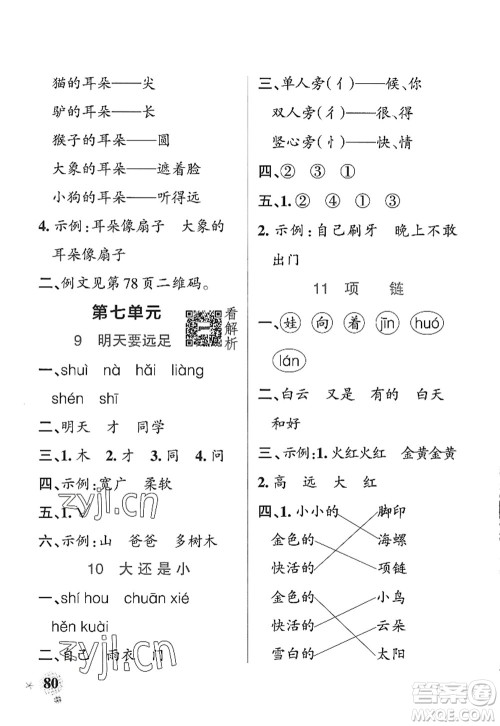 猫的耳朵——尖
驴的耳朵——长
猴子的耳朵——圆
大象的耳朵——遮着脸
小狗的耳朵——听得远
4. 示例:耳朵像扇子 大象的
耳朵像扇子
二、例文见第78页二维码。
第七单元
看解析
9 明天要远足
一、shuì nà hǎi liàng
shén shī
二、明天 才 同学
三、1. 木 2. 才 3. 同 4. 问
四、示例:宽广 柔软
五、1. √
六、示例:山 爸爸 多树木
10 大还是小
一、shí hou chuān xié
hěn kuài
二、自己 雨衣 门
80
三、单人旁(亻)——候、你
双人旁(彳)——很、得
竖心旁(忄)——快、情
四、② ③ ①
五、1. ② ④ ① ③
2. 示例:自己刷牙 晚上不敢
出门
11 项 链
一、娃 向 着 jīn huó
lán
二、白云 又是 有的 白天
和好
三、示例:1. 火红火红 金黄金黄
2. 高 远 大 红
四、1. 小小的 脚印
金色的 海螺
快活的 项链
金色的 小鸟
快活的 云朵
雪白的 太阳
zyjl.cn
zyjl.cn
答案圈
MXQE.COM